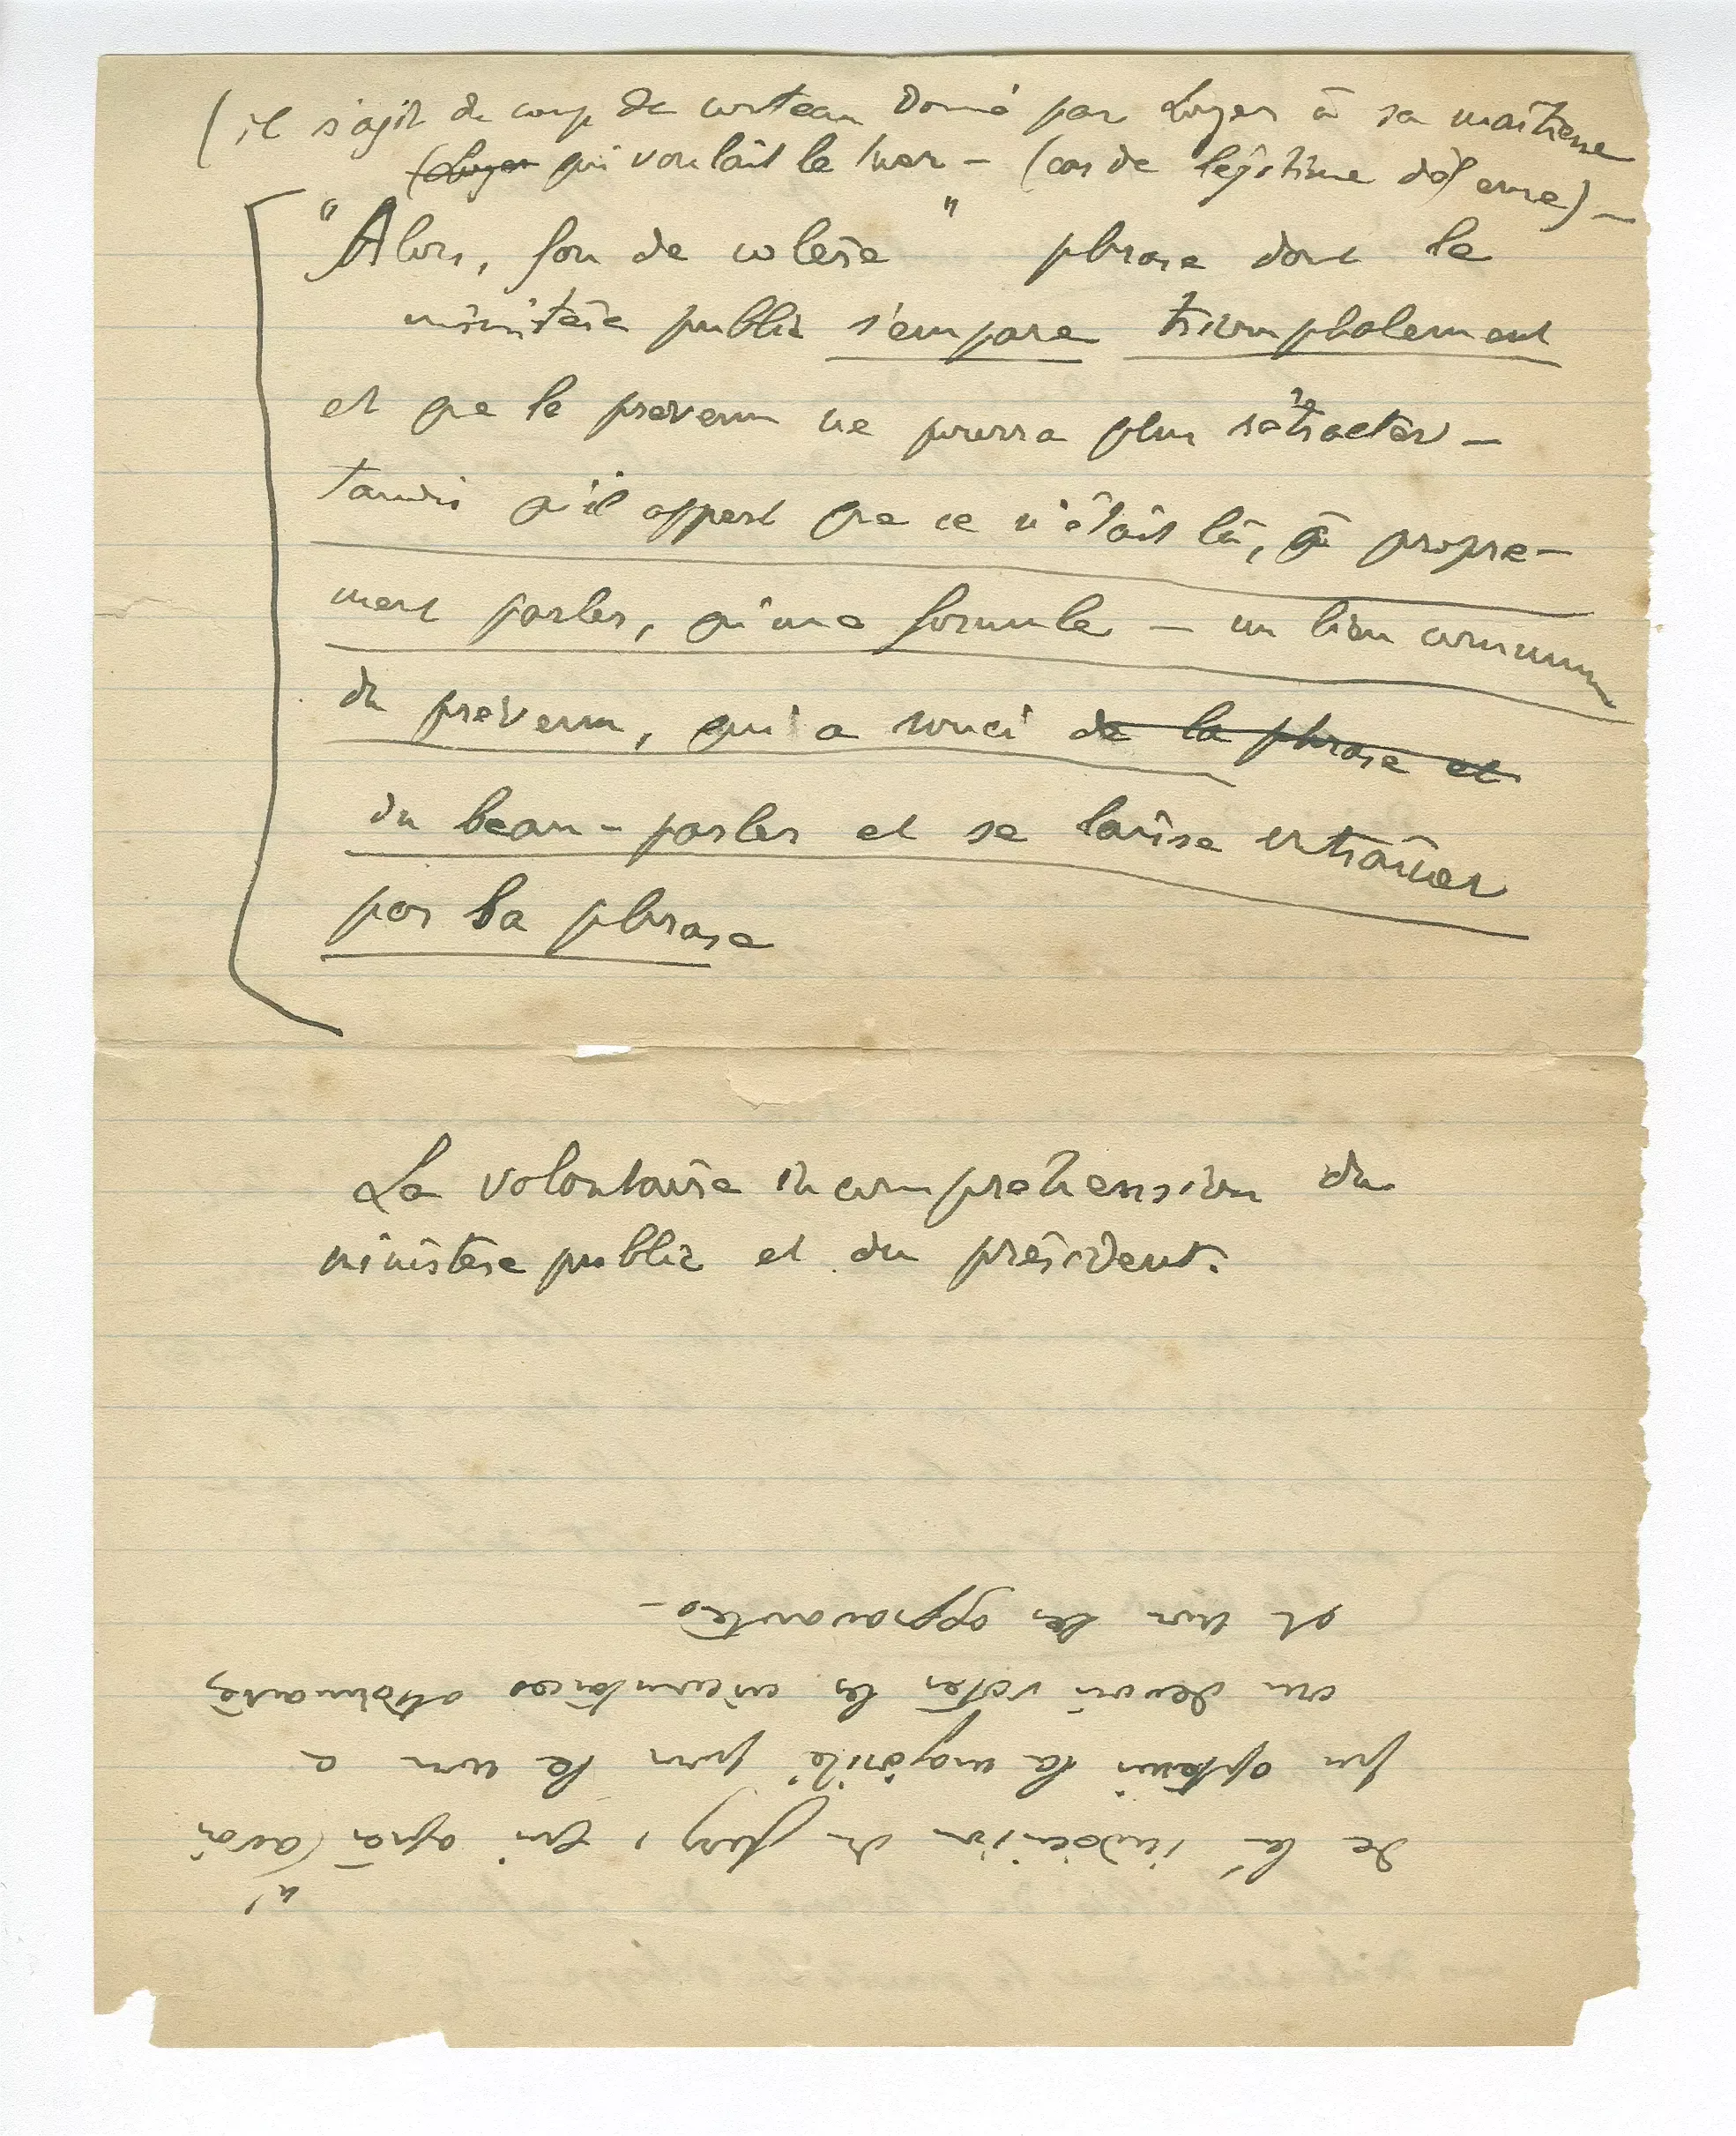 (il s'agit du coup de couteau donné par Loyer à sa maîtresse
(Loyer qui voulait le tuer – (cas de légitime défense) –
"Alors, fou de colère" phrase dont le
ministère public s'empare triomphalement
et que le prevenu ne pourra plus retracter –
tandis qu'il appert que ce n'était là, à propre-
ment parler, qu'une formule – un lieu commun
du prevenu, qui a souci de la phrase et
du beau-parler et se laisse entraîner
par la phrase
La volontaire incompréhension du
ministère public et du président.
de là l'indécision du Jury, qui après avoir
n'
pu obtenir la majorité pour le non a
cru devoir voter les circonstances atténuantes
et non les aggravantes –